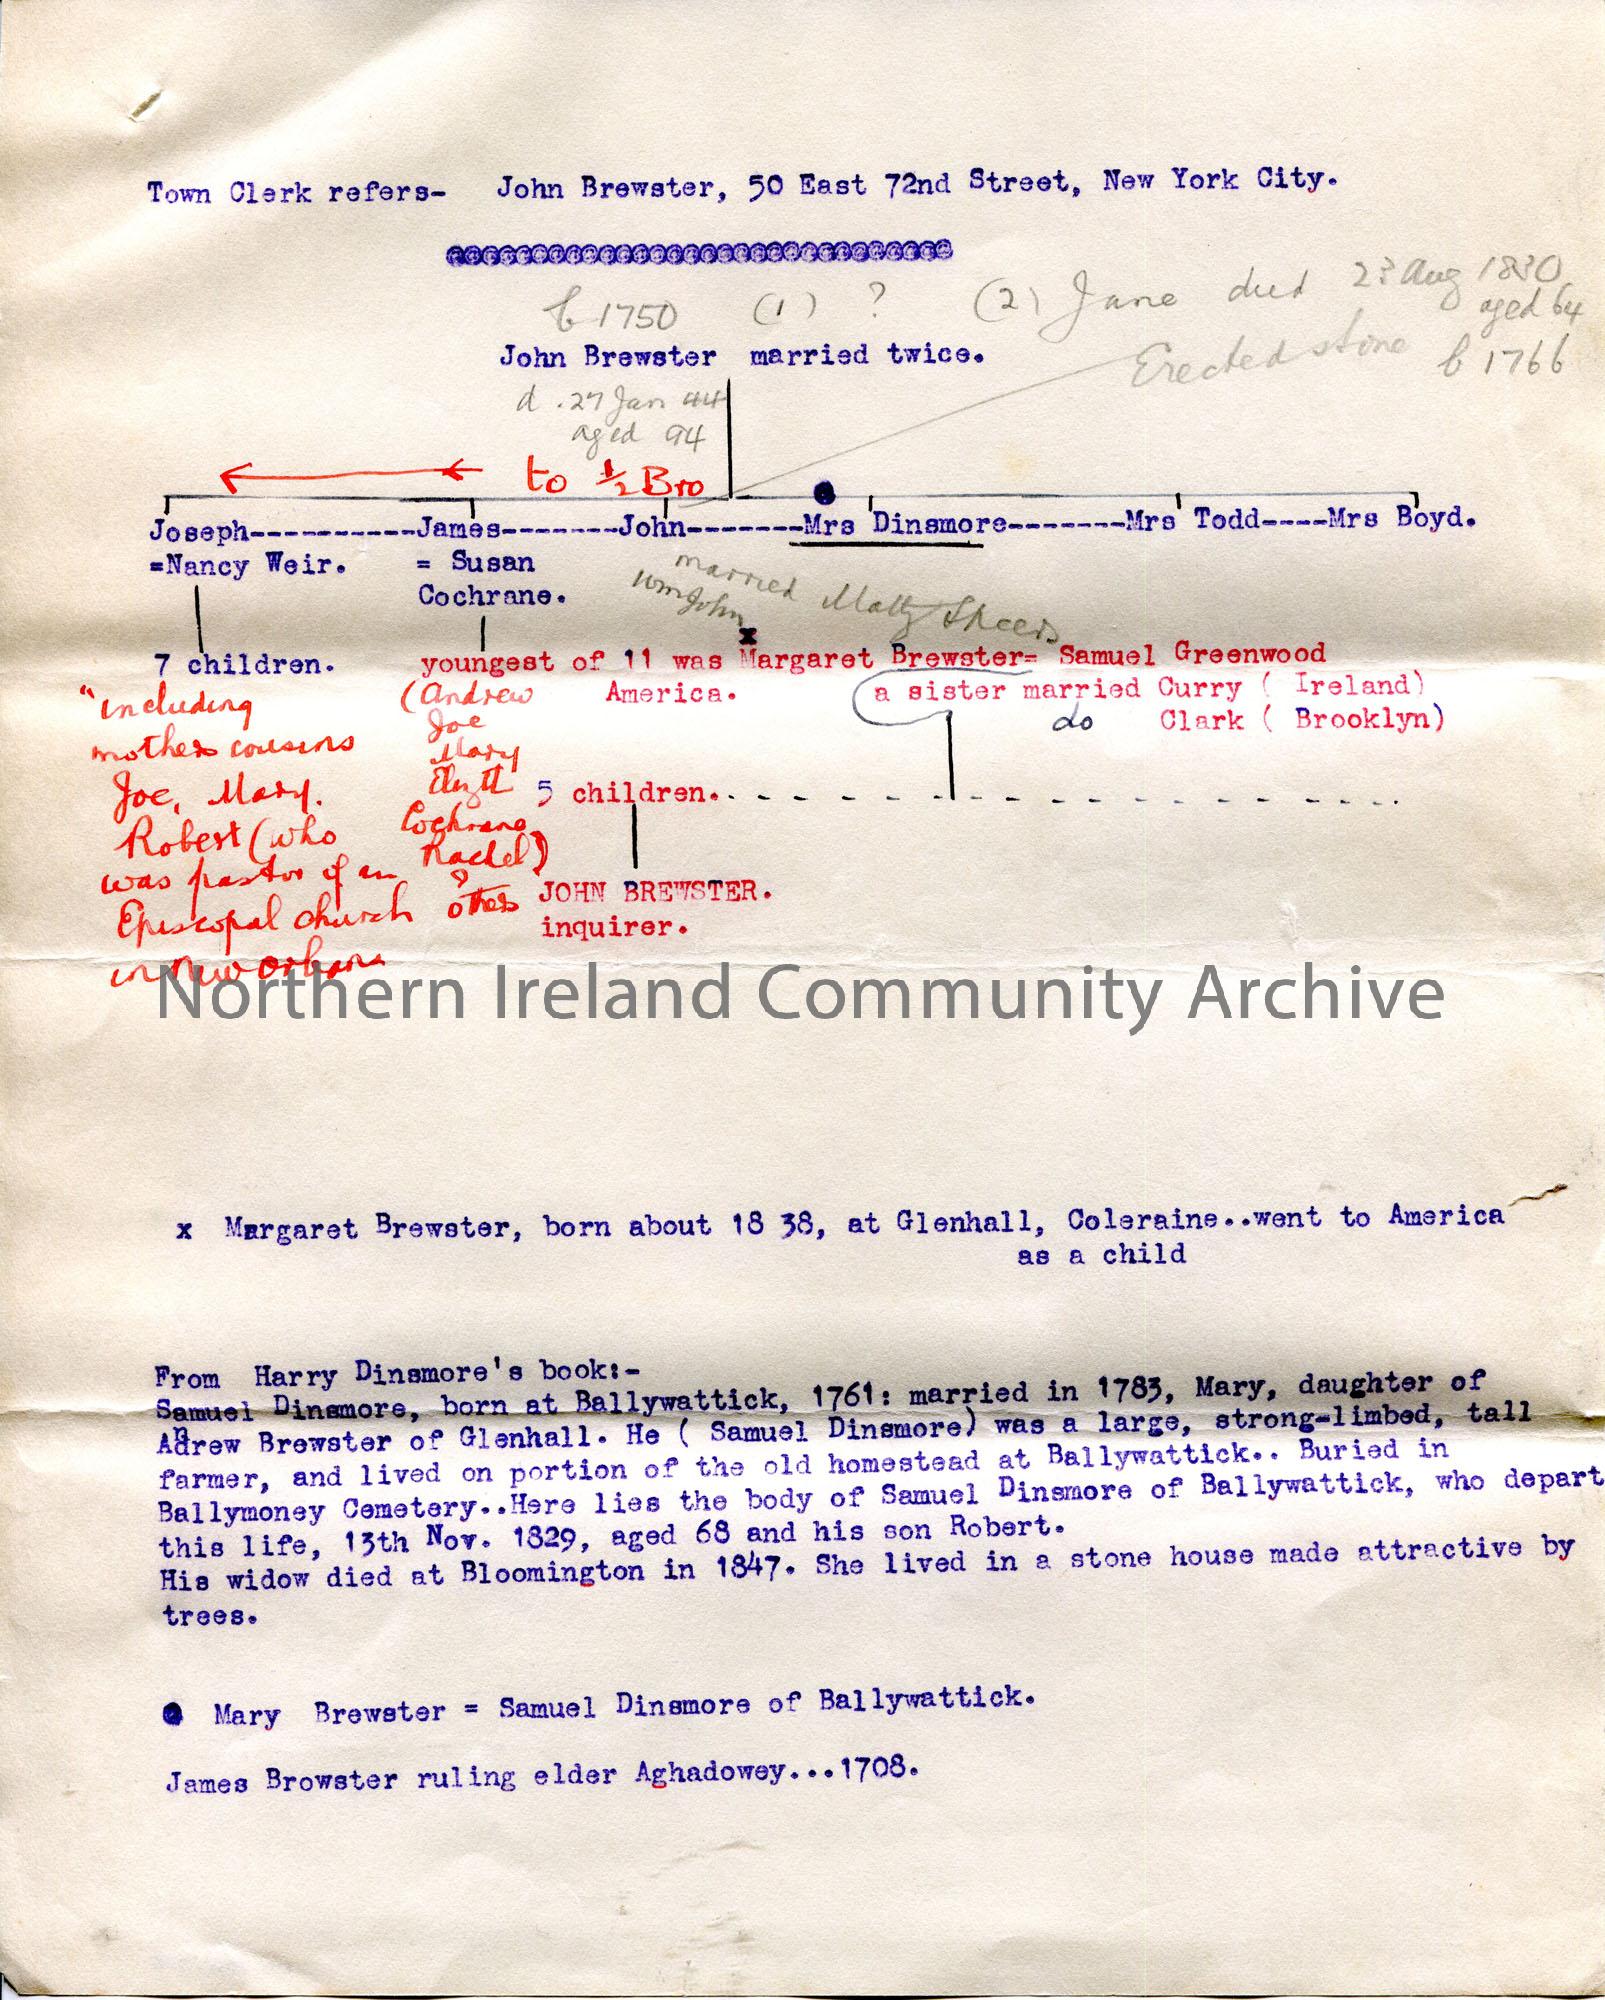 Town Clerk refers- John Brewster, 50 East 72nd Street, New York City.
@@@@@@@@@@@@@@@@@@@@@@@@@@@@@@
b 1750 (1) ? (2) Jane died 23 Aug 1830
aged 64
John Brewster married twice.
Erected stone b 1766
d. 27 Jan 44
aged 94
to ½ Bro
Joseph----------James-------John-------Mrs Dinsmore-------Mrs Todd----Mrs Boyd.
=Nancy Weir. = Susan
Cochrane.
married Matty Speers
Wm John
x
7 children. youngest of 11 was Margaret Brewster= Samuel Greenwood
America. a sister married Curry ( Ireland)
do Clark ( Brooklyn)
"including
mothers cousins
Joe, Mary.
Robert (who
was pastor of an
Episcopal church
in New Orleans
(Andrew
Joe
Mary
Elizth
Cochrane
Rachel)
? others
5 children.. - - - - - - - - - - - .
JOHN BREWSTER.
inquirer.
Northern Ireland Community Archive
x Margaret Brewster, born about 18 38, at Glenhall, Coleraine..went to America
as a child
From Harry Dinsmore's book:-
Samuel Dinsmore, born at Ballywattick, 1761: married in 1783, Mary, daughter of
Adrew Brewster of Glenhall. He ( Samuel Dinsmore) was a large, strong-limbed, tall
farmer, and lived on portion of the old homestead at Ballywattick.. Buried in
Ballymoney Cemetery..Here lies the body of Samuel Dinsmore of Ballywattick, who depart
this life, 13th Nov. 1829, aged 68 and his son Robert.
His widow died at Bloomington in 1847. She lived in a stone house made attractive by
trees.
Mary Brewster = Samuel Dinsmore of Ballywattick.
James Browster ruling elder Aghadowey...1708.